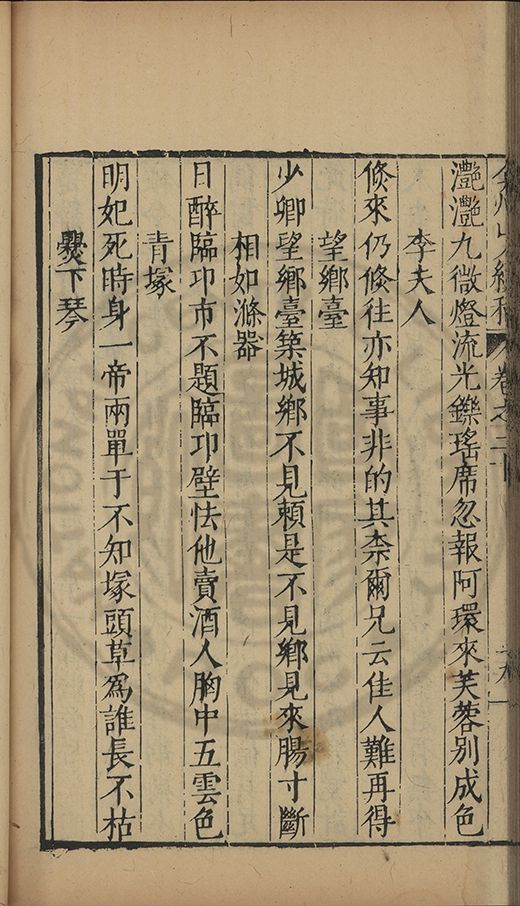 灧灧九微燈流光鑠瑤席忽報阿環來芙蓉別成色
李夫人
倐來仍倐往亦知事非的其柰爾兄云佳人難再得
望鄉臺
少卿望鄉臺築城鄉不見頼是不見鄉見來腸寸斷
相如滌器
日醉臨卭市不題臨卭壁怯他賣酒人胸中五雲色
青塚
明妃死時身一帝兩單于不知塚頭草爲誰長不枯
爨下琴